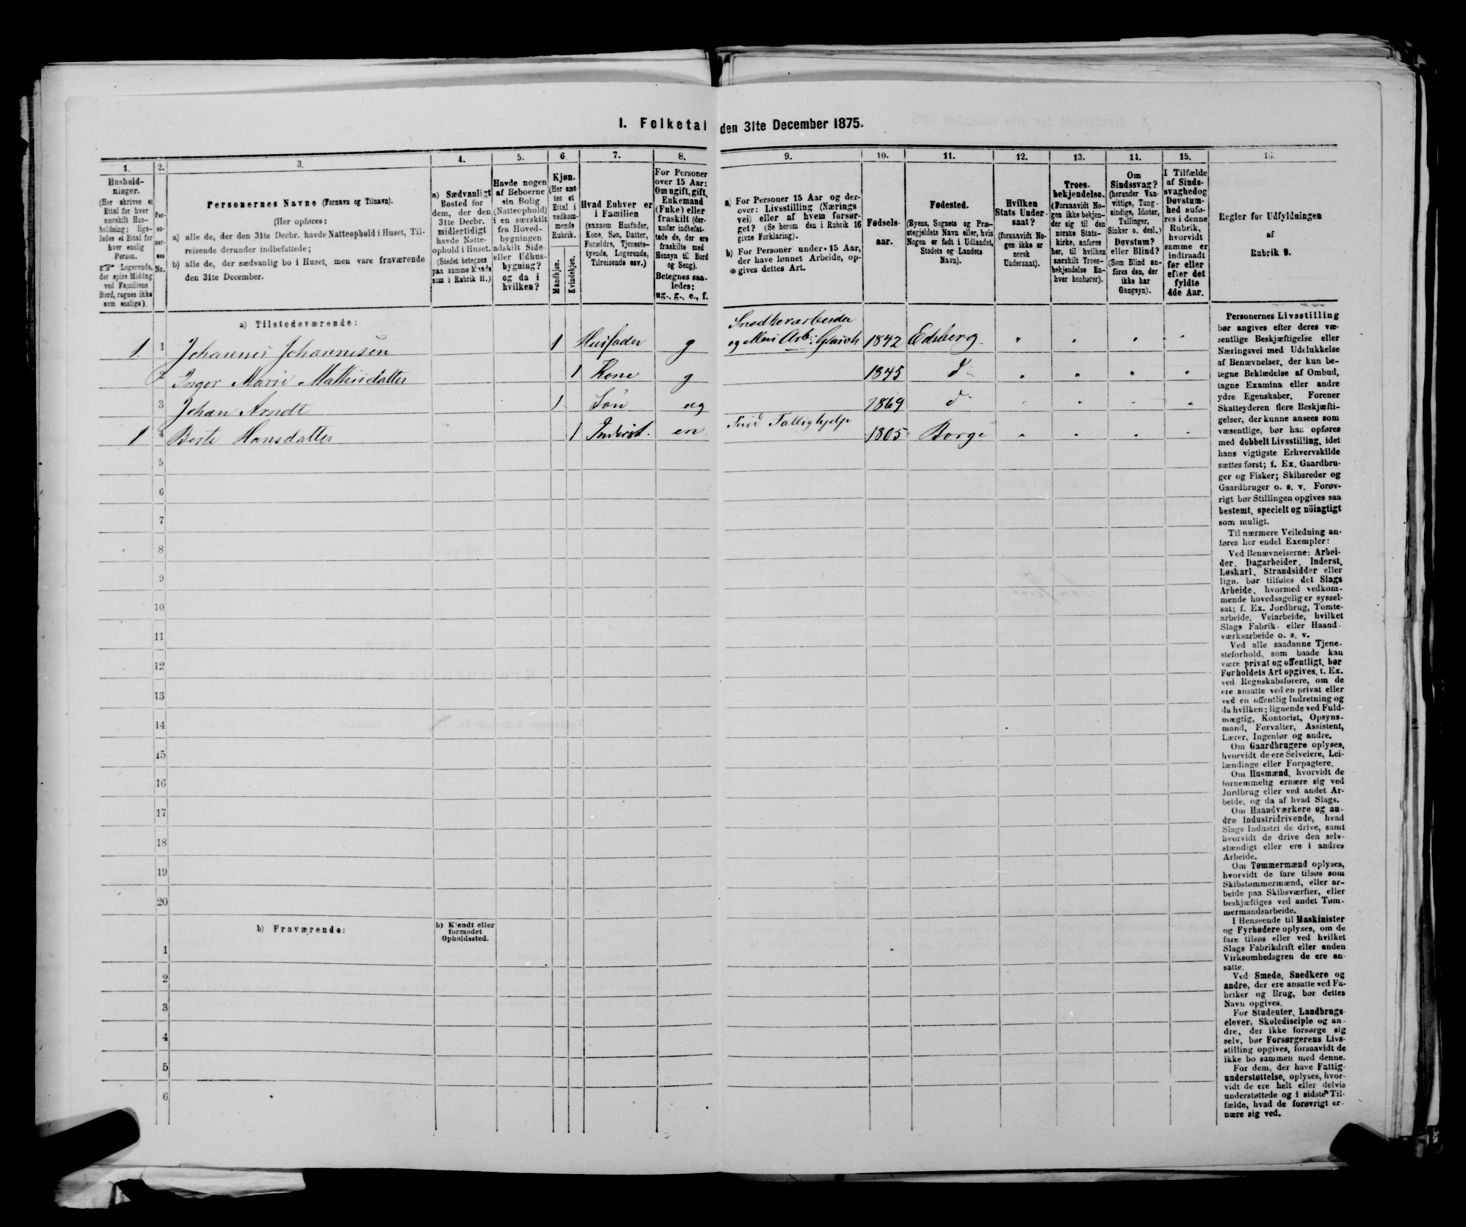 I. Folketal den 31te December 1875.
1. 2. 3. 4. 5. 6. 7. 8. 9. 10. 11. 12. 13. 14. 15. 16.
Hushold-
ninger.
(Her skrives et
Ettal for hver
særskilt Hus-
holdning; lige-
ledes et Ettal for
hver enslig
Person.
Logerende,
der spise Middag
ved Familiens
Bord, regnes ikke
som enslige).
Per-
so-
ner-
nes
No.
Personernes Navne (Fornavn og Tilnavn).
(Her opføres:
a) alle de, der den 31te Decbr. havde Natteophold i Huset, Til-
reisende derunder indbefattede;
b) alle de, der sædvanlig bo i Huset, men vare fraværende
den 31te December.
a) Sædvanligt
Bosted for
dem, der den
31te Decbr.
midlertidigt
havde Natte-
ophold i Huset.
(Stedet betegnes
paa samme Maade
som i Rubrik 11.)
Havde nogen
af Beboerne
sin Bolig
(Natteophold)
i en særskilt
fra Hoved-
bygningen
adskilt Side
eller Udhus-
bygning?
og da i
hvilken?
Kjøn.
(Her sæt-
tes et
Ettal i
vedkom-
mende
Rubrik.
Mandkjøn.
Kvindekjøn.
Hvad Enhver er
i Familien
(saasom Husfader,
Kone, Søn, Datter,
Forældre, Tjeneste-
tyende, Logerende,
Tilreisende osv.)
For Personer
over 15 Aar:
Om ugift, gift,
Enkemand
(Enke) eller
fraskilt (der-
under indbefat-
tede de, der ere
fraskilte med
Hensyn til Bord
og Seng).
Betegnes saa-
ledes:
ug., g., e., f.
a) For Personer 15 Aar og der-
over: Livsstilling (Nærings-
vei) eller af hvem forsør-
get? (Se herom den i Rubrik 16
givne Forklaring).
b) For Personer under 15 Aar,
der have lønnet Arbeide, op-
gives dettes Art.
Fødsels-
aar.
Fødested.
(Byens, Sognets og Præ-
stegjeldets Navn eller, hvis
Nogen er født i Udlandet,
Stedets og Landets
Navn).
Hvilken
Stats Under-
saat?
(forsaavidt No-
gen ikke er
norsk
Undersaat).
Troes-
bekjendelse.
(Forsaavidt No-
gen ikke bekjen-
der sig til den
norske Stats-
kirke, anføres
her, til hvilken
særskilt Troes-
bekjendelse En-
hver henhører).
Om
Sindssvag?
(herunder Van-
vittige, Tung-
sindige, Idioter,
Tullinger,
Sinker o. desl.)
Døvstum?
eller Blind?
(Som Blind an-
føres den, der
ikke har
Gangsyn).
I Tilfælde
af Sinds-
svaghed og
Døvstum-
hed anfø-
res i denne
Rubrik,
hvorvidt
samme er
indtraadt
før eller
efter det
fyldte
4de Aar.
Regler for Udfyldningen
af
Rubrik 9.
a) Tilstedeværende:
1 1 Johannes Johannesen 1 Husfader g Snedkerarbeider 1842 Edsberg " " " "
2 Inger Marie Mathisdatter 1 Kone g 1845 " " " "
3 Johan Arndt 1 Søn ug 1869 d " " " "
1 4 Berte Hansdatter 1 Inderst. en Fattighjelp 1805 Borge " " " "
5
6
7
8
9
10
11
12
13
14
15
16
17
18
19
20
b) Fraværende:
b) Kjendt eller
formodet
Opholdssted.
1
2
3
4
5
6
Personernes Livsstilling
bør angives efter deres væ-
sentlige Beskjæftigelse eller
Næringsvei med Udelukkelse
af Benævnelser, der kun be-
tegne Beklædelse af Ombud,
tagne Examina eller andre
ydre Egenskaber. Forener
Skatteyderen flere Beskjæfti-
gelser, der kunne ansees som
væsentlige, bør han opføres
med dobbelt Livsstilling, idet
hans vigtigste Erhvervskilde
sættes først; f. Ex. Gaardbru-
ger og Fisker; Skibsreder og
Gaardbruger o. s. v. Forøv-
rigt bør Stillingen opgives saa
bestemt, specielt og nøiagtigt
som muligt.
Til nærmere Veiledning an-
føres her endel Exempler:
Ved Benævnelserne: Arbei-
der, Dagarbeider, Inderst,
Løskarl, Strandsidder eller
lign. bør tilføies det Slags
Arbeide, hvormed vedkom-
mende hovedsagelig er syssel-
sat; f. Ex. Jordbrug, Tomte-
arbeide, Veiarbeide, hvilket
Slags Fabrik- eller Haand-
værksarbeide o. s. v.
Ved alle saadanne Tjene-
steforhold, som baade kan
være privat og offentligt, bør
Forholdets Art opgives, t. Ex.
ved Regnskabsførere, om de
ere ansatte ved en privat eller
ved en offentlig Indretning og
da hvilken; lignende ved Fuld-
mægtig, Kontorist, Opsyns-
mand, Forvalter, Assistent,
Lærer, Ingeniør og andre.
Om Gaardbrugere oplyses,
hvorvidt de ere Selveiere, Lei-
lændinge eller Forpagtere.
Om Husmænd, hvorvidt de
fornemmelig ernære sig ved
Jordbrug eller ved andet Ar-
beide, og da af hvad Slags.
Om Haandværkere og an-
dre Industridrivende, hvad
Slags Industri de drive, samt
hvorvidt de drive den selv-
stændigt eller ere i andres
Arbeide.
Om Tømmermænd oplyses,
hvorvidt de fare tilsøs som
Skibstømmermænd, eller ar-
beide paa Skibsværfter, eller
beskjæftiges ved andet Tøm-
mermandsarbeide.
I Henseende til Maskinister
og Fyrbødere oplyses, om de
fare tilsøs eller ved hvilket
Slags Fabrikdrift eller anden
Virksomhedsgren de ere an-
satte.
Ved Smede, Snedkere og
andre, der ere ansatte ved Fa-
briker og Brug, bør dettes
Navn opgives.
For Studenter, Landbrugs-
elever, Skoledisciple og an-
dre, der ikke forsørge sig
selv, bør Forsørgerens Livs-
stilling opgives, forsaavidt de
ikke bo sammen med denne.
For dem, der have Fattig-
understøttelse, oplyses, hvor-
vidt de ere helt eller delvis
understøttede og i sidste Til-
fælde, hvad de forøvrigt er-
nære sig ved.